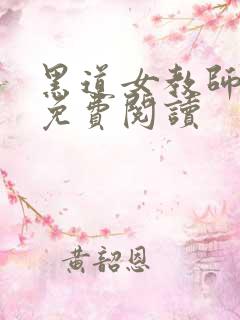 黑道女教師
免費閱讀
黃韶恩